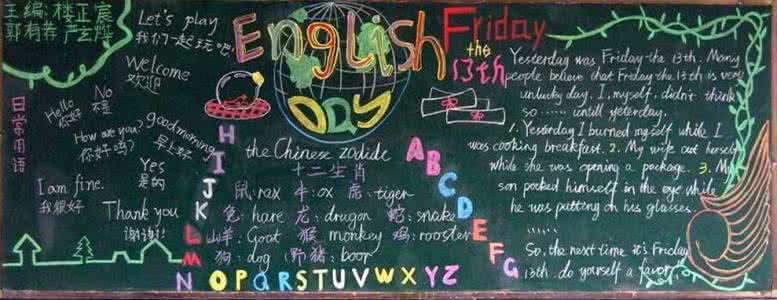 主编:楼正宸
郭有奔 严玄烨
Let's play
我们一起玩吧!
Welcome
欢迎
日常用语
Hello
你好
No
不是
How are you?
你好吗?
good morning
早上好
Yes
是的
I am fine.
我很好
Thank you
谢谢!
English
Day
Friday
the
13th
the Chinese zodide
十二生肖
鼠:rax 牛:ox 虎:tiger
兔:hare 龙:drugon 蛇:snake
山羊:Goat 猴:monkey 鸡:rooster
狗:dog 野猪:boor
A
B
C
D
E
F
G
H
I
J
K
L
M
N O P Q R S T U V W X Y Z
Yesterday was Friday the 13th. Many
people believe that Friday the 13th is very
unlucky day. I, myself, didn't think
so ...... untill yesterday.
1. Yesterday I burned myself while I
was cooking breakfast. 2. My wife cut herself
while she was opening a package. 3. My
son pocked himself in the eye while
he was putting on his glasses.
......
So, the next time it's Friday
13th. do yourself a favor.